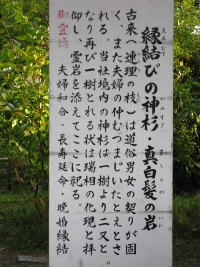 縁結びの神杉・真白髪の岩
古来(連理の枝)は道俗男女の契りが固
く、また夫婦の仲むつまじいたとえとさ
れる。当社境内の神杉は一樹より二又と
なり再び一樹とれる状は瑞相の化現と拝
仰し、霊岩を添えてここに祀る。
御霊徳
夫婦和合 長寿延命 晩婚縁結